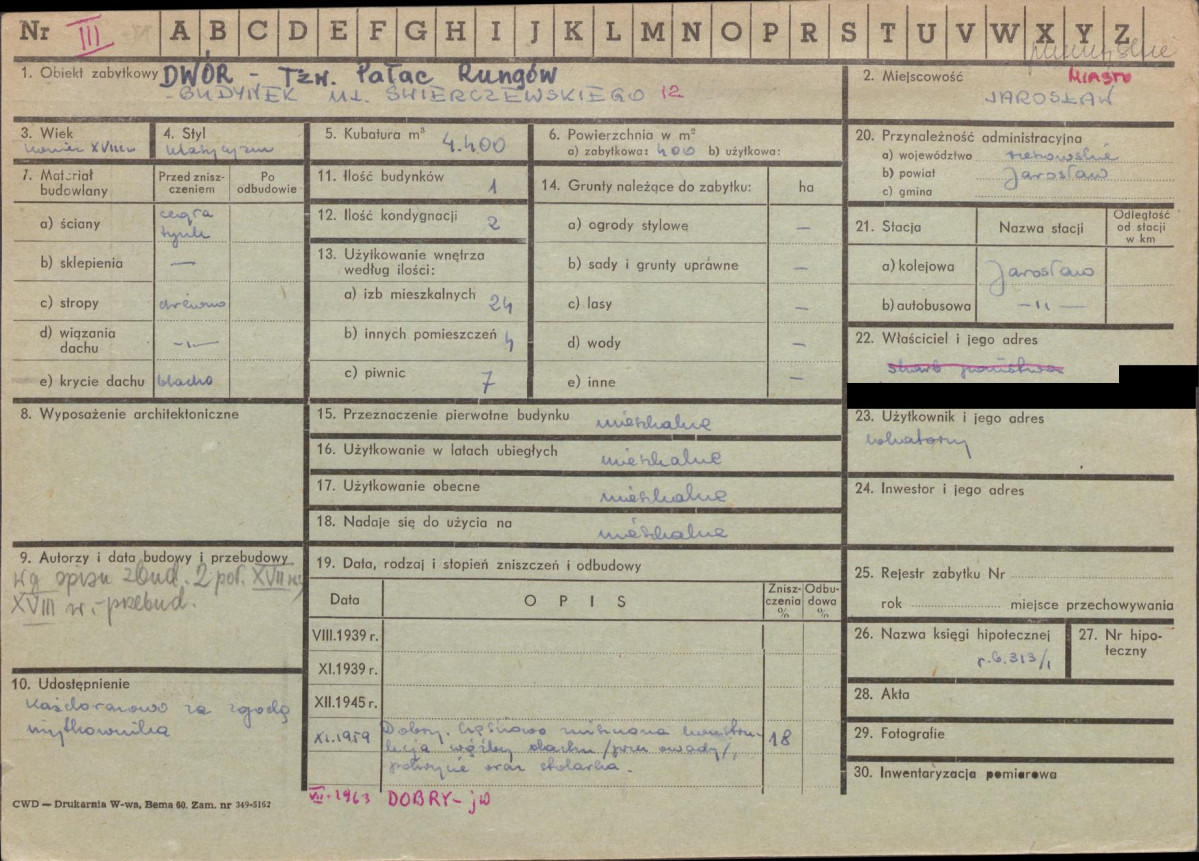 Nr III A B C D E F G H I J K L M N O P R S T U V W X Y Z
przemyskie
1. Obiekt zabytkowy DWÓR - Tzw. Pałac Rungów
BUDYNEK UL. ŚWIERCZEWSKIEGO 12
2. Miejscowość MIASTO
JAROSŁAW
3. Wiek
koniec XVIII w
4. Styl
klasycyzm
5. Kubatura m³ 4.400
6. Powierzchnia w m²
a) zabytkowa: 400 b) użytkowa:
7. Materiał budowlany
Przed zniszczeniem
Po odbudowie
a) ściany cegła tynk
b) sklepienia —
c) stropy drewno
d) wiązania dachu —„—
e) krycie dachu blacha
8. Wyposażenie architektoniczne
9. Autorzy i data budowy i przebudowy
Wg opisu zbud. 2 poł. XVII w,
XVIII w. - przebud.
10. Udostępnienie
Każdorazowo za zgodą
użytkownika
11. Ilość budynków 1
12. Ilość kondygnacji 2
13. Użytkowanie wnętrza
według ilości:
a) izb mieszkalnych 24
b) innych pomieszczeń 4
c) piwnic 7
14. Grunty należące do zabytku: ha
a) ogrody stylowe —
b) sady i grunty uprawne —
c) lasy —
d) wody —
e) inne —
15. Przeznaczenie pierwotne budynku mieszkalne
16. Użytkowanie w latach ubiegłych mieszkalne
17. Użytkowanie obecne mieszkalne
18. Nadaje się do użycia na mieszkalne
19. Data, rodzaj i stopień zniszczeń i odbudowy
Data OPIS Zniszczenia % Odbudowa %
VIII.1939 r.
XI.1939 r.
XII.1945 r.
XI.1959 Dobry. Częściowo zniszczona konstru-
kcja więźby dachu /przez owady/, 18
pokrycie oraz stolarka.
VII-1963 DOBRY - jw
20. Przynależność administracyjna
a) województwo rzeszowskie
b) powiat Jarosław
c) gmina
21. Stacja
Nazwa stacji
Odległość od stacji w km
a) kolejowa Jarosław
b) autobusowa —„—
22. Właściciel i jego adres
skarb państwa
23. Użytkownik i jego adres
lokatorzy
24. Inwestor i jego adres
25. Rejestr zabytku Nr
rok miejsce przechowywania
26. Nazwa księgi hipotecznej
r.b.313/1
27. Nr hipoteczny
28. Akta
29. Fotografie
30. Inwentaryzacja pomiarowa
CWD — Drukarnia W-wa, Bema 60. Zam. nr 349-5162